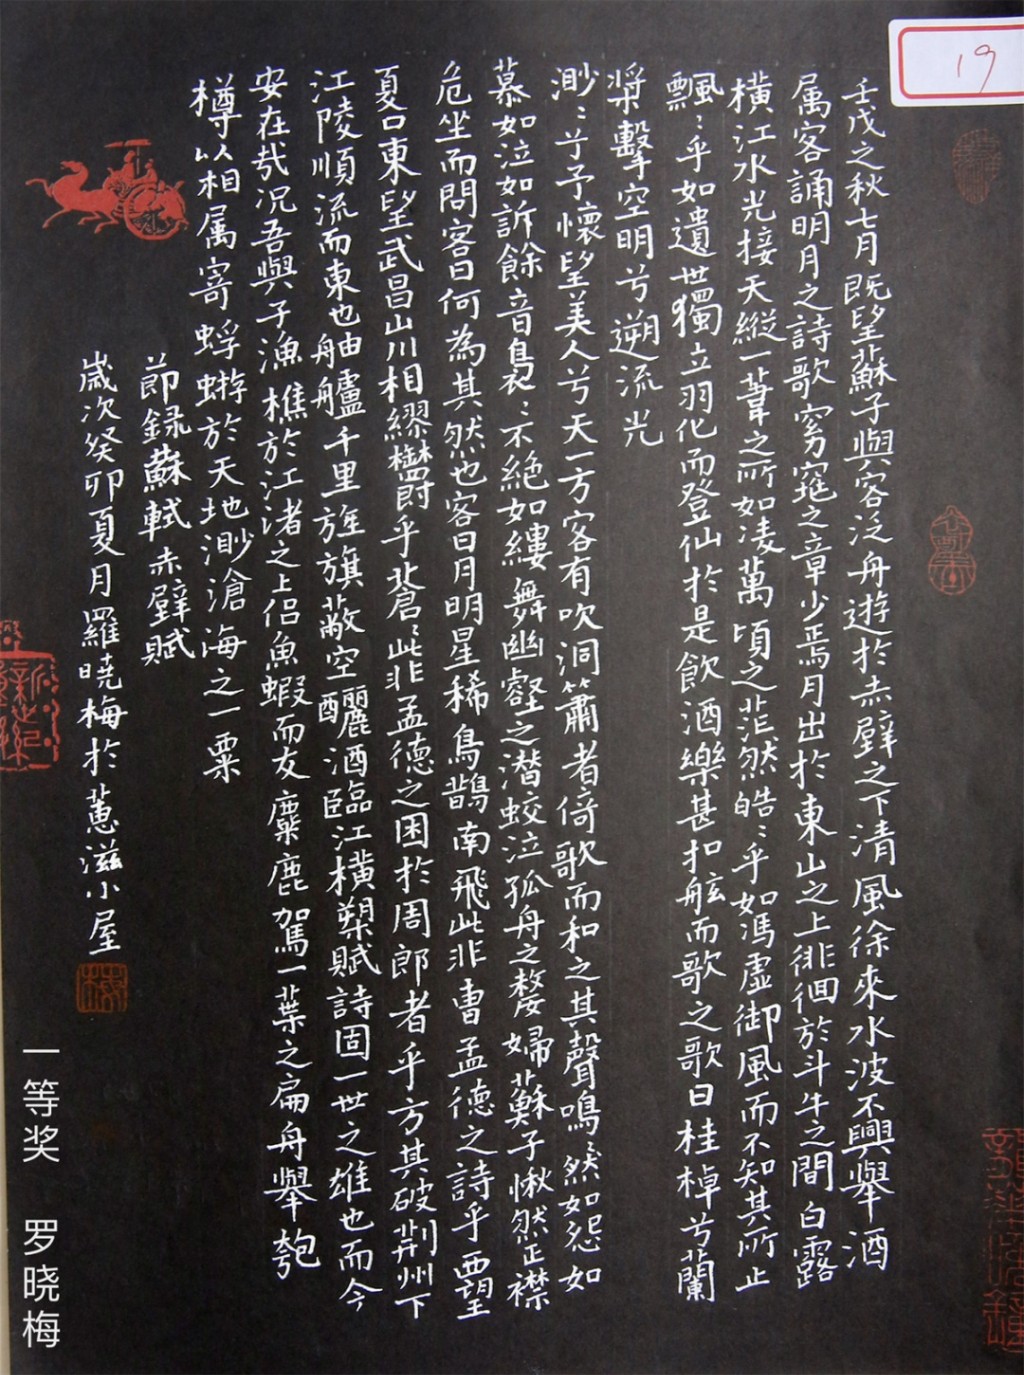 19
壬戌之秋七月既望蘇子與客泛舟遊於赤壁之下清風徐來水波不興舉酒
属客誦明月之詩歌窈窕之章少焉月出於東山之上徘徊於斗牛之間白露
横江水光接天縱一葦之所如凌萬頃之茫然皓〻乎如馮虚御風而不知其所止
飄〻乎如遺世獨立羽化而登仙於是飲酒樂甚扣舷而歌之歌曰桂棹兮蘭
槳擊空明兮遡流光
渺〻兮予懷望美人兮天一方客有吹洞簫者倚歌而和之其聲鳴〻然如怨如
慕如泣如訴餘音裊〻不絶如縷舞幽壑之潜蛟泣孤舟之嫠婦蘇子愀然正襟
危坐而問客曰何為其然也客曰月明星稀烏鵲南飛此非曹孟德之詩乎西望
夏口東望武昌山川相繆鬱乎蒼〻此非孟德之困於周郎者乎方其破荆州下
江陵順流而東也舳艫千里旌旗蔽空釃酒臨江横槊賦詩固一世之雄也而今
安在哉况吾與子漁樵於江渚之上侣魚蝦而友麋鹿駕一葉之扁舟舉匏
樽以相属寄蜉蝣於天地渺滄海之一粟
節録蘇軾赤壁賦
歲次癸卯夏月羅曉梅於蕙滋小屋
一等奖 罗晓梅